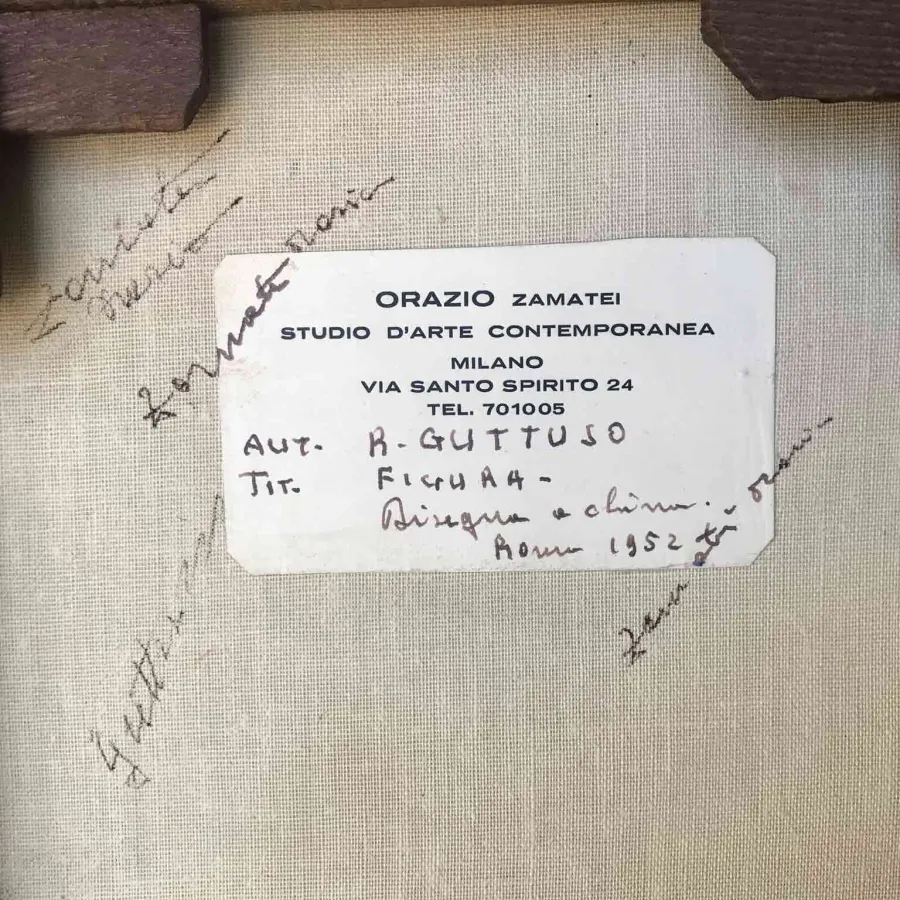 Zamatei
Orazio
Zamatei Orazio
ORAZIO ZAMATEI
STUDIO D'ARTE CONTEMPORANEA
MILANO
VIA SANTO SPIRITO 24
TEL. 701005
AUT. R. GUTTUSO
TIT. FIGURA -
Disegno a china.
Roma 1952
Zamatei Orazio
Guttuso